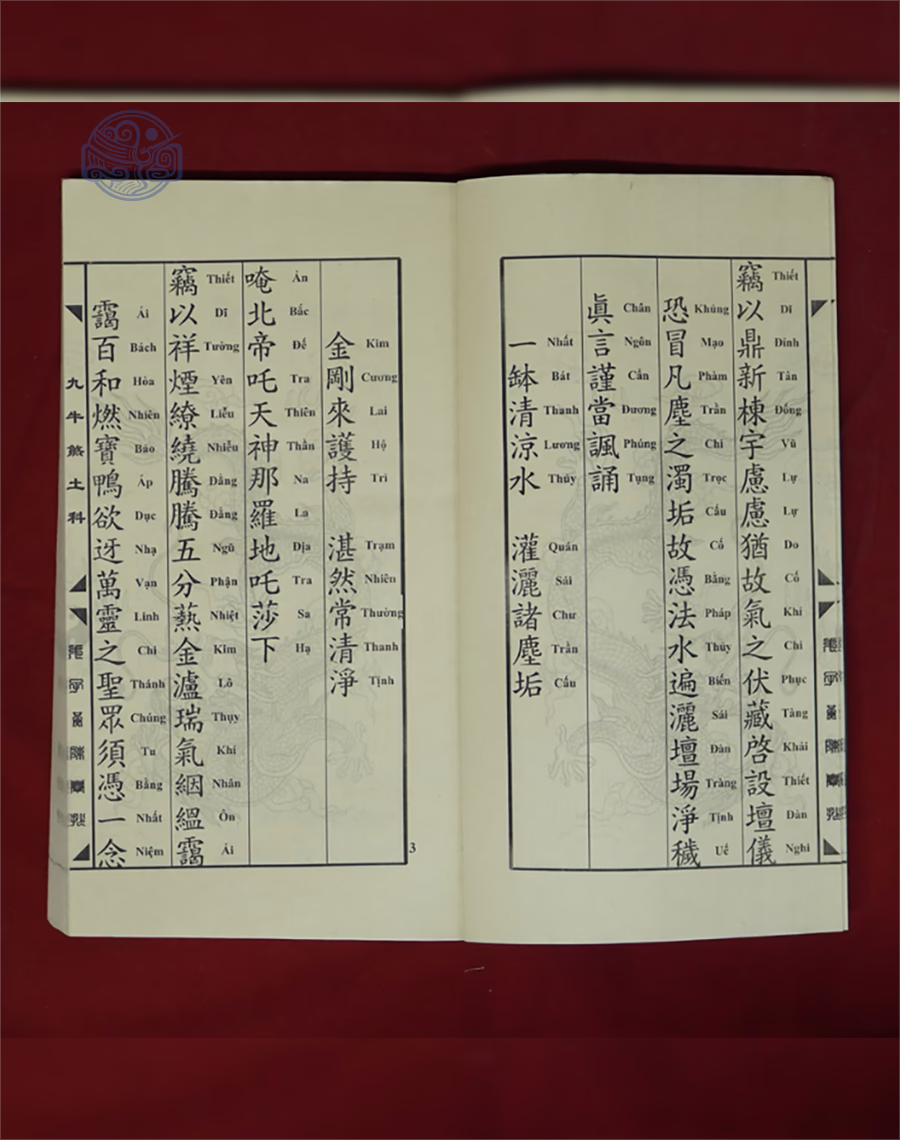 竊以鼎新棟宇慮慮猶故氣之伏藏啓設壇儀
Thiết Dĩ Đỉnh Tân Đống Vũ Lự Lự Do Cố Khí Chi Phục Tàng Khải Thiết Đàn Nghi
恐冒凡塵之濁垢故憑法水遍灑壇場淨穢
Khủng Mạo Phàm Trần Chi Trọc Cấu Cố Bằng Pháp Thủy Biến Sái Đàn Tràng Tịnh Uế
眞言謹當諷誦
Chân Ngôn Cẩn Đương Phúng Tụng
一鉢清涼水 灌灑諸塵垢
Nhất Bát Thanh Lương Thủy Quán Sái Chư Trần Cấu
3
金剛來護持 湛然常清淨
Kim Cương Lai Hộ Trì Trạm Nhiên Thường Thanh Tịnh
唵北帝吒天神那羅地吒莎下
Án Bắc Đế Tra Thiên Thần Na La Địa Tra Sa Hạ
竊以祥煙繚繞騰騰五分爇金瀘瑞氣絪縕靄
Thiết Dĩ Tường Yên Liễu Nhiễu Đằng Đằng Ngũ Phận Nhiệt Kim Lô Thụy Khí Nhân Ôn Ái
靄百和燃寶鴨欲迓萬靈之聖眾須憑一念
Ái Bách Hòa Nhiên Bảo Áp Dục Nhạ Vạn Linh Chi Thánh Chúng Tu Bằng Nhất Niệm
九牛煞土科